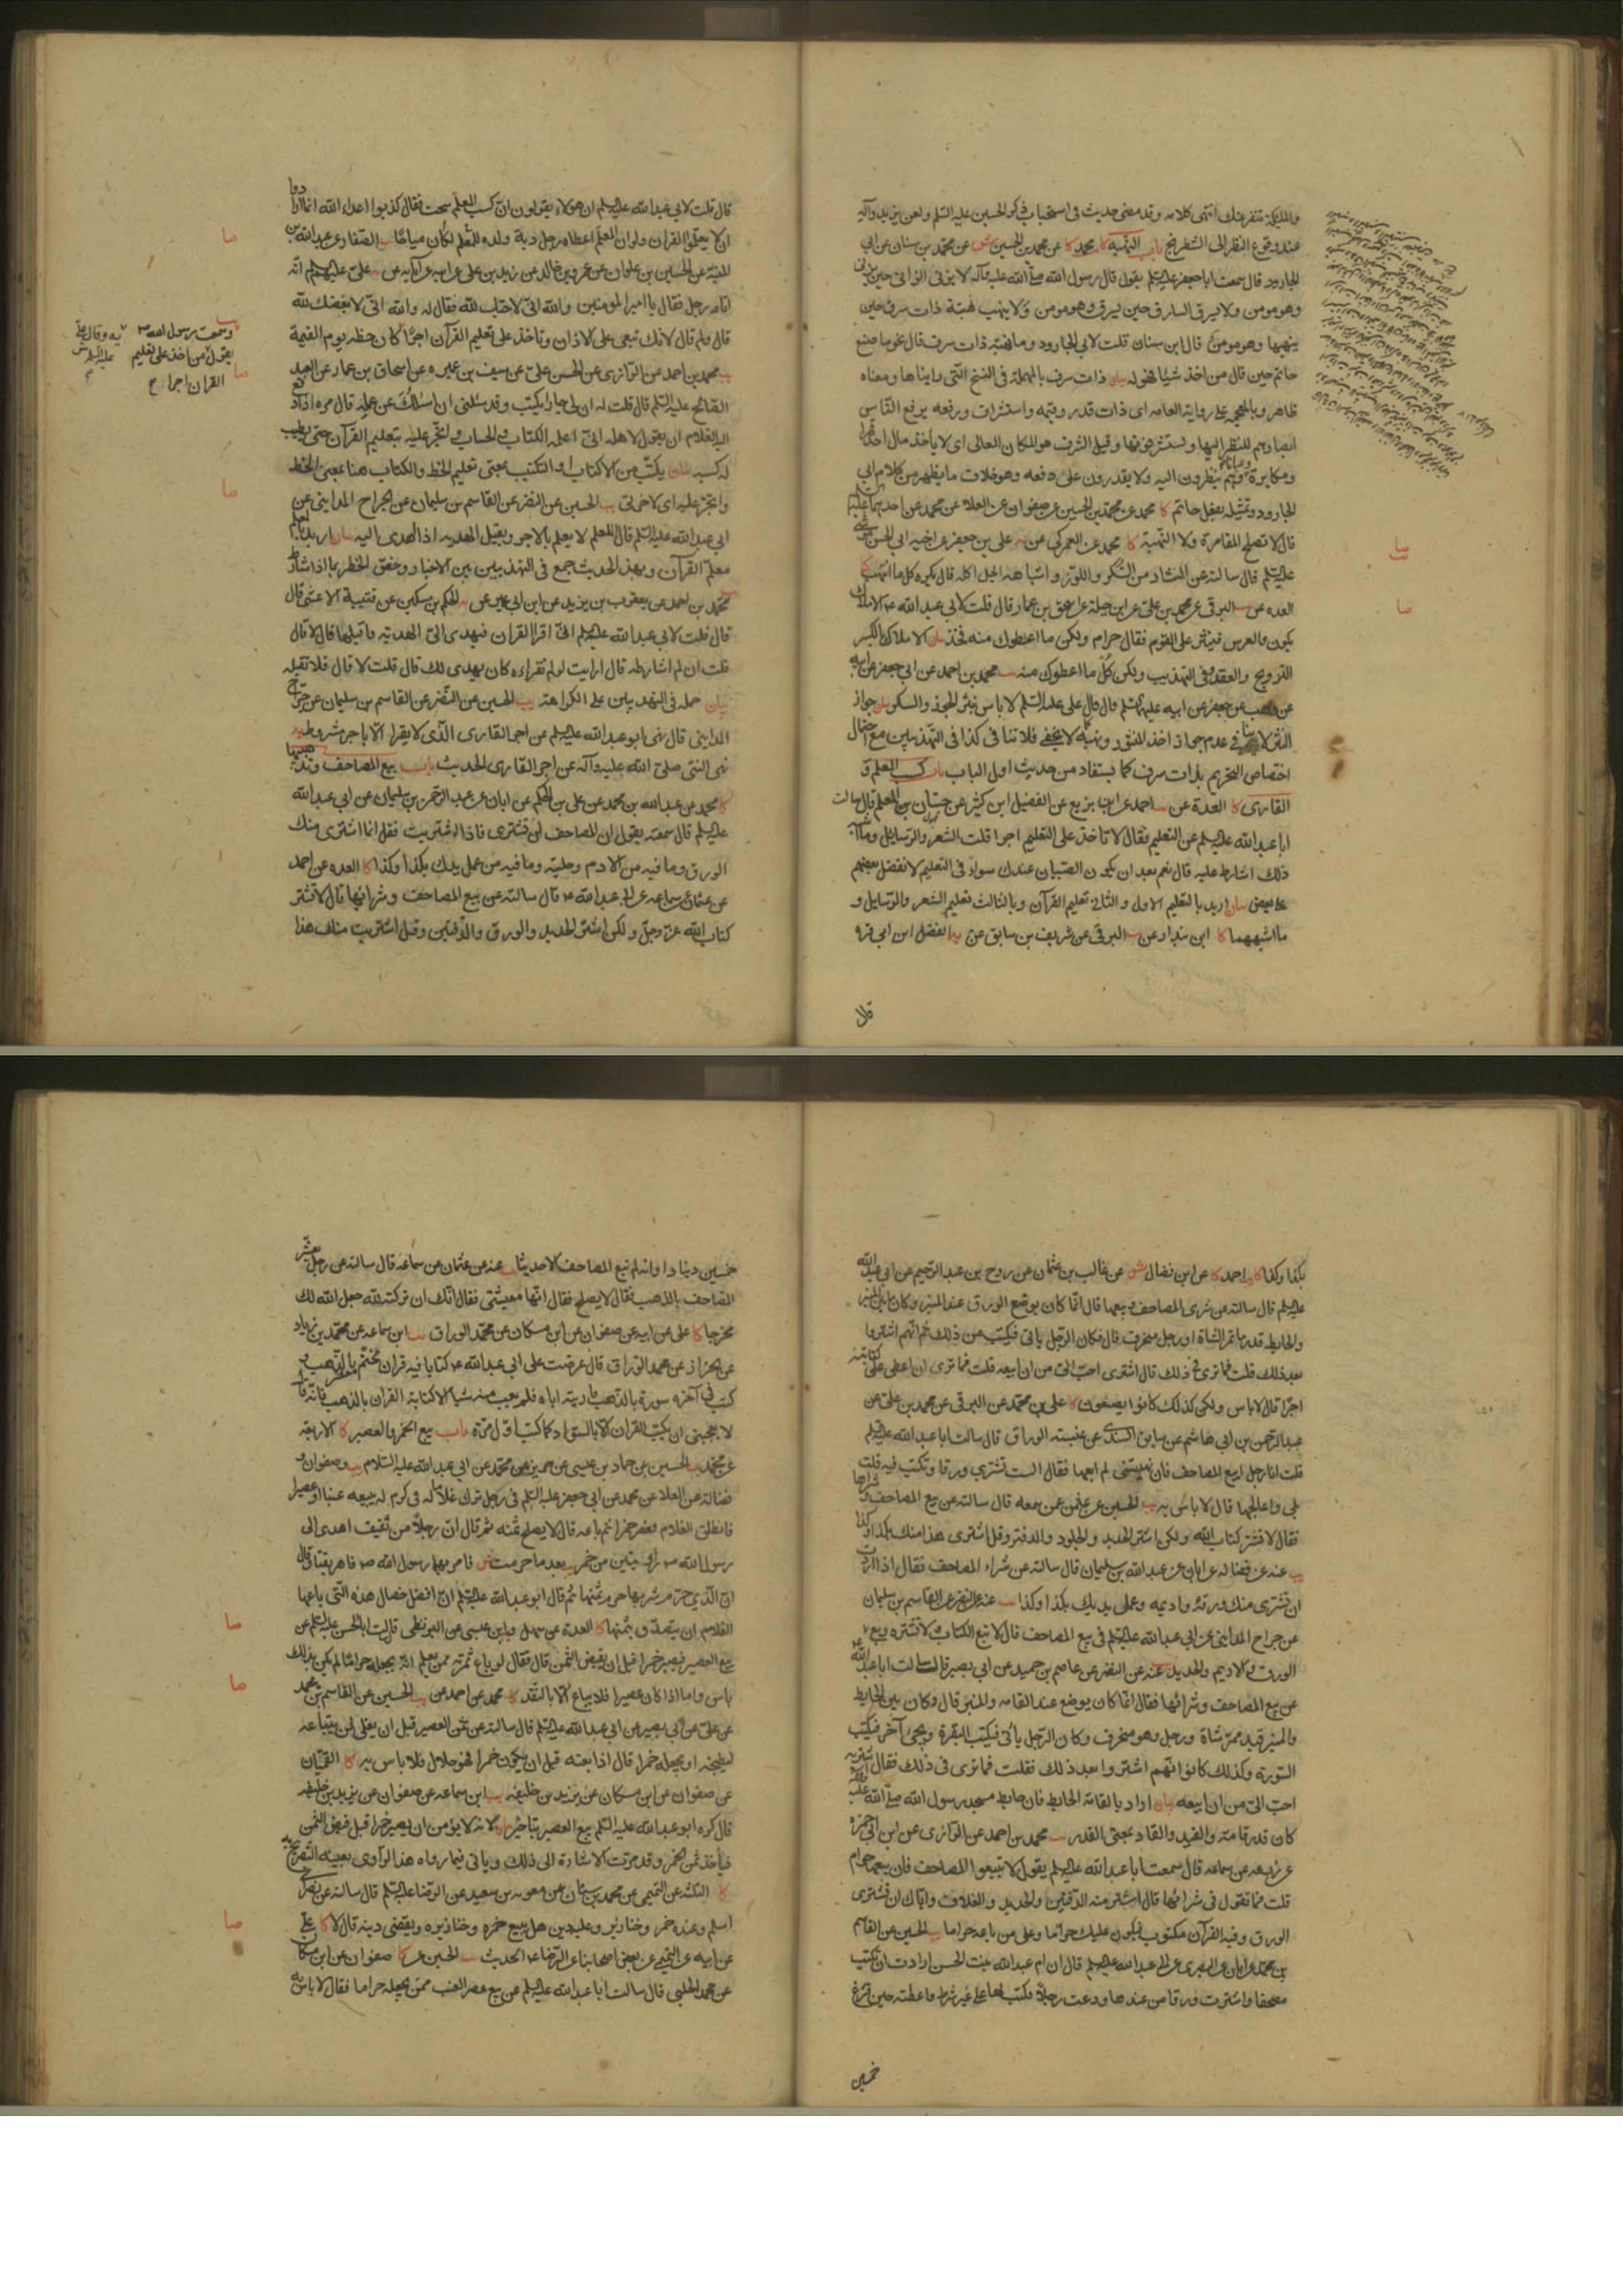 والمليكة تنفر عنك انتهى كلامه وقد مضى حديث في استحباب ذكر الحسين عليه السلم ولعن يزيد وآله
عند وقوع النظر الى الشطرنج باب النهبة كا محمد كا عن محمد بن الحسين ش عن محمد بن سنان عن ابي
الجارود قال سمعت ابا جعفر عليه السلم يقول قال رسول الله صلى الله عليه وآله لا يزني الزاني حين يزني
وهو مومن ولا يسرق السارق حين يسرق وهو مومن ولا ينهب نهبة ذات سرف حين
ينهبها وهو مومن قال ابن سنان قلت لابي الجارود وما نهبة ذات سرف قال نحو ما صنع
حاتم حين قال من اخذ شيئا فهو له بيان ذات سرف بالمهملة في النسخ التي رايناها ومعناه
ظاهر وبالمعجمة على رواية العامه اى ذات قدر وقيمه واستشراف ورفعه يرفع الناس
ابصارهم للنظر اليها ويستشرفونها وقيل الشرف هو المكان العالى اى لا ياخذ مال احد قهرا
ومكابرة وعيانا وهم ينظرون اليه ولا يقدرون على دفعه وهو خلاف ما يظهر من كلام ابي
الجارود وتمثيله بفعل حاتم كا محمد عن محمد بن الحسين عن صفوان عن العلا عن محمد عن احدهما عليهما السلم
قال لا تصلح المقامرة ولا النهبة كا محمد عن العمركي عن يه على بن جعفر عن اخيه ابي الحسن موسى
عليه السلم قال سالته عن النثار من السكر واللوز واشباهه ايحل اكله قال يكره كل ما انتهب كا
العده عن يب البرقي عن محمد بن علي عن ابن جبلة عن اسحق بن عمار قال قلت لابي عبد الله ع الاملاك
يكون والعرس فينثر على القوم فقال حرام ولكن ما اعطوك منه فخذ بيان الاملاك بالكسر
التزويج والعقد وفي التهذيب ولكن كل ما اعطوك منه يب محمد بن احمد عن ابي جعفر عن ابيه
عن وهب عن جعفر عن ابيه عليهما السلم قال قال على عليه السلم لا باس بنثر الجوز والسكر بيان جواز
النثر لا ينافي عدم جواز اخذ المنثور ونهبه كما لا يخفى فلا تنافى كذا في التهذيبين مع احتمال
اختصاص التحريم بذات سرف كما يستفاد من حديث اول الباب باب كسب المعلم و
القارى كا العدة عن يب احمد عن ابن بزيع عن الفضيل ابن كثير عن حسان بن المعلم قال سالت
ابا عبد الله عليه السلم عن التعليم فقال لا تاخذ على التعليم اجرا قلت الشعر والرسايل وما اشبه
ذلك اشارط عليه قال نعم بعد ان يكون الصبيان عندك سواء في التعليم لا تفضل بعضهم
على بعض بيان اريد بالتعليم الاول والثاني تعليم القرآن وبالثالث تعليم الشعر والرسايل و
ما اشبههما كا ابن بندار عن يب البرقي عن شريف بن سابق عن يه الفضل ابن ابي قره
قال
قال قلت لابي عبد الله عليه السلم ان هولاء يقولون ان كسب المعلم سحت فقال كذبوا اعداء الله انما ارادوا
ان لا يعلموا القران ولو ان المعلم اعطاه رجل دية ولده للمعلم لكان مباحا يب الصفار عن عبد الله بن
المنبه عن الحسين بن علوان عن عمرو بن خالد عن زيد بن علي عن ابيه عن آبائه عن يه علي عليهم السلم انه
اتاه رجل فقال يا امير المومنين والله اني لاحبك لله فقال له والله اني لابغضك لله
قال ولم قال لانك تبغى على الاذان وتاخذ على تعليم القرآن اجرا كان حظه يوم القيمة
وسمعت رسول الله ص
يقول من اخذ على تعليم
القران اجرا ح
يه وقال علي
عليه السلم
يب محمد بن احمد عن الرازى عن الحسن بن علي عن سيف بن عميره عن اسحاق بن عمار عن العبد
الصالح عليه السلم قال قلت له ان لي جارا يكتب وقد سئلني ان اسئلك عن عمله قال مره اذا دفع
اليه الغلام ان يقول لاهله اني انما اعلمه الكتاب والحساب واتجر عليه بتعليم القرآن حتى يطيب
له كسبه بيان يكتب من الاكتاب او التكتيب بمعنى تعليم الخط والكتاب هنا بمعنى الخط
واتجر عليه اى لاخرتي يب الحسين عن النضر عن القاسم بن سليمان عن الجراح المدايني عن
ابي عبد الله عليه السلم قال المعلم لا يعلم بالاجر ويقبل الهديه اذا اهدى اليه بيان اريد بالمعلم
معلم القرآن وبهذا الحديث جمع في التهذيبين بين الاخبار وخص الحظر بما اذا شارط
يب محمد بن احمد عن يعقوب بن يزيد عن ابن ابي عمير عن يه الحكم بن مسكين عن قتيبة الاعشى قال
قال قلت لابي عبد الله عليه السلم اني اقرا القران فيهدى الي الهديه فاقبلها قال لا قال
قلت ان لم اشارطه قال ارايت لو لم تقراه كان يهدى لك قال قلت لا قال فلا تقبله
بيان حمله في التهذيبين على الكراهة يب الحسين عن النضر عن القاسم بن سليمان عن جراح
المدايني قال نهى ابو عبد الله عليه السلم عن اجر القارى الذى لا يقرا الا باجر مشروط يه
نهى النبي صلى الله عليه وآله عن اجر القارى الحديث باب بيع المصاحف وتذهيبها
كا محمد عن عبد الله بن محمد عن علي بن الحكم عن ابان عن عبد الرحمن بن سليمان عن ابي عبد الله
عليه السلم قال سمعته يقول ان المصاحف لن تشترى فاذا اشتريت فقل انما اشترى منك
الورق وما فيه من الادم وحليته وما فيه من عمل يدك بكذا وكذا كا العده عن احمد
عن عثمان عن سماعه عن ابي عبد الله ع قال سالته عن بيع المصاحف وشرائها قال لا تشتر
كتاب الله عز وجل ولكن اشتر الحديد والورق والدفتين وقل اشتريت منك هذا
بكذا وكذا كا يب احمد كا عن ابن فضال ش عن غالب بن عثمان عن روح بن عبد الرحيم عن ابي عبد الله
عليه السلم قال سالته عن شرى المصاحف وبيعها قال انما كان يوضع الورق عند المنبر وكان ما بين المنبر
والحايط قدر ما تمر الشاة او رجل منحرف قال فكان الرجل ياتي فيكتب من ذلك ثم انهم اشتروا
بعد ذلك قلت فما ترى في ذلك قال اشترى احب الي من ان ابيعه قلت فما ترى ان اعطى على كتابته
اجرا قال لا باس ولكن كذلك كانوا يصنعون كا علي بن محمد عن البرقي عن محمد بن علي عن
عبد الرحمن بن ابي هاشم عن سابق السندي عن عنبسة الوراق قال سالت ابا عبد الله عليه السلم
قلت انا رجل ابيع المصاحف فان نهيتني لم ابعها فقال الست تشترى ورقا وتكتب فيه قلت
بلى واعالجها قال لا باس به يب الحسين عن عثمن عن سمعه قال سالته عن بيع المصاحف وشرائها
فقال لا تشتر كتاب الله ولكن اشتر الحديد والجلود والدفتر وقل اشترى هذا منك بكذا وكذا
يب عنه عن فضاله عن ابان عن عبد الله بن سليمان قال سالته عن شراء المصاحف فقال اذا اردت
ان تشترى منك ورقه واديمه وعمل يديك بكذا وكذا يب عنه عن النضر عن القاسم بن سليمان
عن جراح المدايني عن ابي عبد الله عليه السلم في بيع المصاحف قال لا تبع الكتاب ولا تشتره وبع
الورق والاديم والحديد عنه عن النضر عن عاصم بن حميد عن ابي بصير قال سالت ابا عبد الله ع
عن بيع المصاحف وشرائها فقال انما كان يوضع عند القامه والمنبر قال وكان بين الحايط
والمنبر قيد ممر شاة ورجل وهو منحرف وكان الرجل ياتي فيكتب البقرة ويجئ آخر فيكتب
السورة وكذلك كانوا ثم انهم اشتروا بعد ذلك فقلت فما ترى في ذلك فقال اشتريه
احب الي من ان ابيعه بيان اراد بالقامة الحايط فان حايط مسجد رسول الله صلى الله عليه وآله
كان قدر قامة والقيد والقاد بمعنى القدر يب محمد بن احمد عن الرازى عن ابن ابي حمزة
عن زرعه عن سماعه قال سمعت ابا عبد الله عليه السلم يقول لا تبيعوا المصاحف فان بيعها حرام
قلت فما تقول في شرائها قال اشتر منه الدفتين والحديد والغلاف واياك ان تشترى
الورق وفيه القرآن مكتوب فيكون عليك حراما وعلى من باعه حراما يب الحسين عن القاسم
بن محمد عن ابان عن البصرى عن ابي عبد الله عليه السلم قال ان ام عبد الله بنت الحسن ارادت ان تكتب
مصحفا واشترت ورقا من عندها ودعت رجلا فكتب لها على غير شرط فاعطته حين فرغ
خمسين
خمسين دينارا وانه لم تبع المصاحف الا حديثا يب عنه عن عثمان عن سماعه قال سالته عن رجل يعشر
المصاحف بالذهب فقال لا يصلح فقال انها معيشتي فقال انك ان تركته لله جعل الله لك
مخرجا كا علي عن ابيه عن صفوان عن ابن مسكان عن محمد الوراق يب ابن سماعه عن محمد بن زياد
عن الخزاز عن محمد الوراق قال عرضت على ابي عبد الله ع كتابا فيه قران مختم معشر بالذهب و
كتب في آخره سورة بالذهب فاريته اياه فلم يعب منه شيئا الا كتابة القران بالذهب فانه قال
لا يعجبني ان يكتب القران الا بالسواد كما كتب اول مرة باب بيع الخمر والعصير كا الاربعة
عن محمد يب الحسين عن حماد بن عيسى عن حريز عن محمد عن ابي عبد الله عليه السلام يب وصفوان و
فضالة عن العلا عن محمد عن ابي جعفر عليه السلم في رجل ترك غلاما له في كرم له يبيعه عنبا او عصيرا
فانطلق الغلام فعصر خمرا ثم باعه قال لا يصلح ثمنه ثم قال ان رجلا من ثقيف اهدى الى
رسول الله ص راويتين من خمر يب بعد ما حرمت ش فامر بهما رسول الله ص فاهريقتا وقال
ان الذي حرم شربها حرم ثمنها ثم قال ابو عبد الله عليه السلم ان افضل خصال هذه التي باعها
الغلام ان يتصدق بثمنها كا العدة عن سهل وابن عيسى عن البزنطي قال سالت ابا الحسن عليه السلم عن
بيع العصير فيصير خمرا قبل ان يقبض الثمن قال فقال لو باع ثمرته ممن يعلم انه يجعله حراما لم يكن بذلك
باس واما اذا كان عصيرا فلا يباع الا بالنقد كا محمد عن احمد عن يب الحسين عن القاسم بن محمد
عن علي عن ابي بصير عن ابي عبد الله عليه السلم قال سالته عن ثمن العصير قبل ان يغلى لمن يبتاعه
ليطبخه او يجعله خمرا قال اذا بعته قبل ان يكون خمرا فهو حلال فلا باس به كا القميان
عن صفوان عن ابن مسكان عن يزيد بن خليفه يب ابن سماعه عن صفوان عن يزيد بن خليفه
قال كره ابو عبد الله عليه السلم بيع العصير بتاخير بيان لانه لا يؤمن ان يصير خمرا قبل قبض الثمن
فياخذ ثمن الخمر وقد مرت الاشارة الى ذلك وياتي فيما رواه هذا الراوى بعينه التصريح به
كا الثلثه عن التميمي عن محمد بن سنان عن معويه بن سعيد عن الرضا عليه السلم قال سالته عن نصراني
اسلم وعنده خمر وخنازير وعليه دين هل يبيع خمره وخنازيره ويقضي دينه قال لا كا علي
عن ابيه عن التميمي عن بعض اصحابنا عن الرضا ع الحديث يب الحسين عن كا صفوان عن ابن مسكان
عن محمد الحلبي قال سالت ابا عبد الله عليه السلم عن بيع عصير العنب ممن يجعله حراما فقال لا باس به